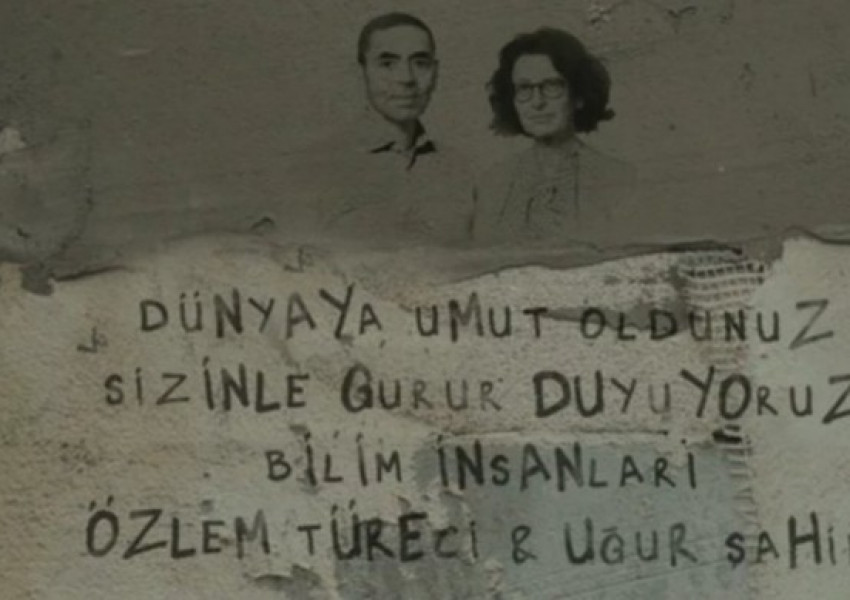 DÜNYAYA UMUT OLDUNUZ
SİZİNLE GURUR DUYUYORUZ
BİLİM İNSANLARİ
ÖZLEM TÜRECİ & UĞUR ŞAHİ